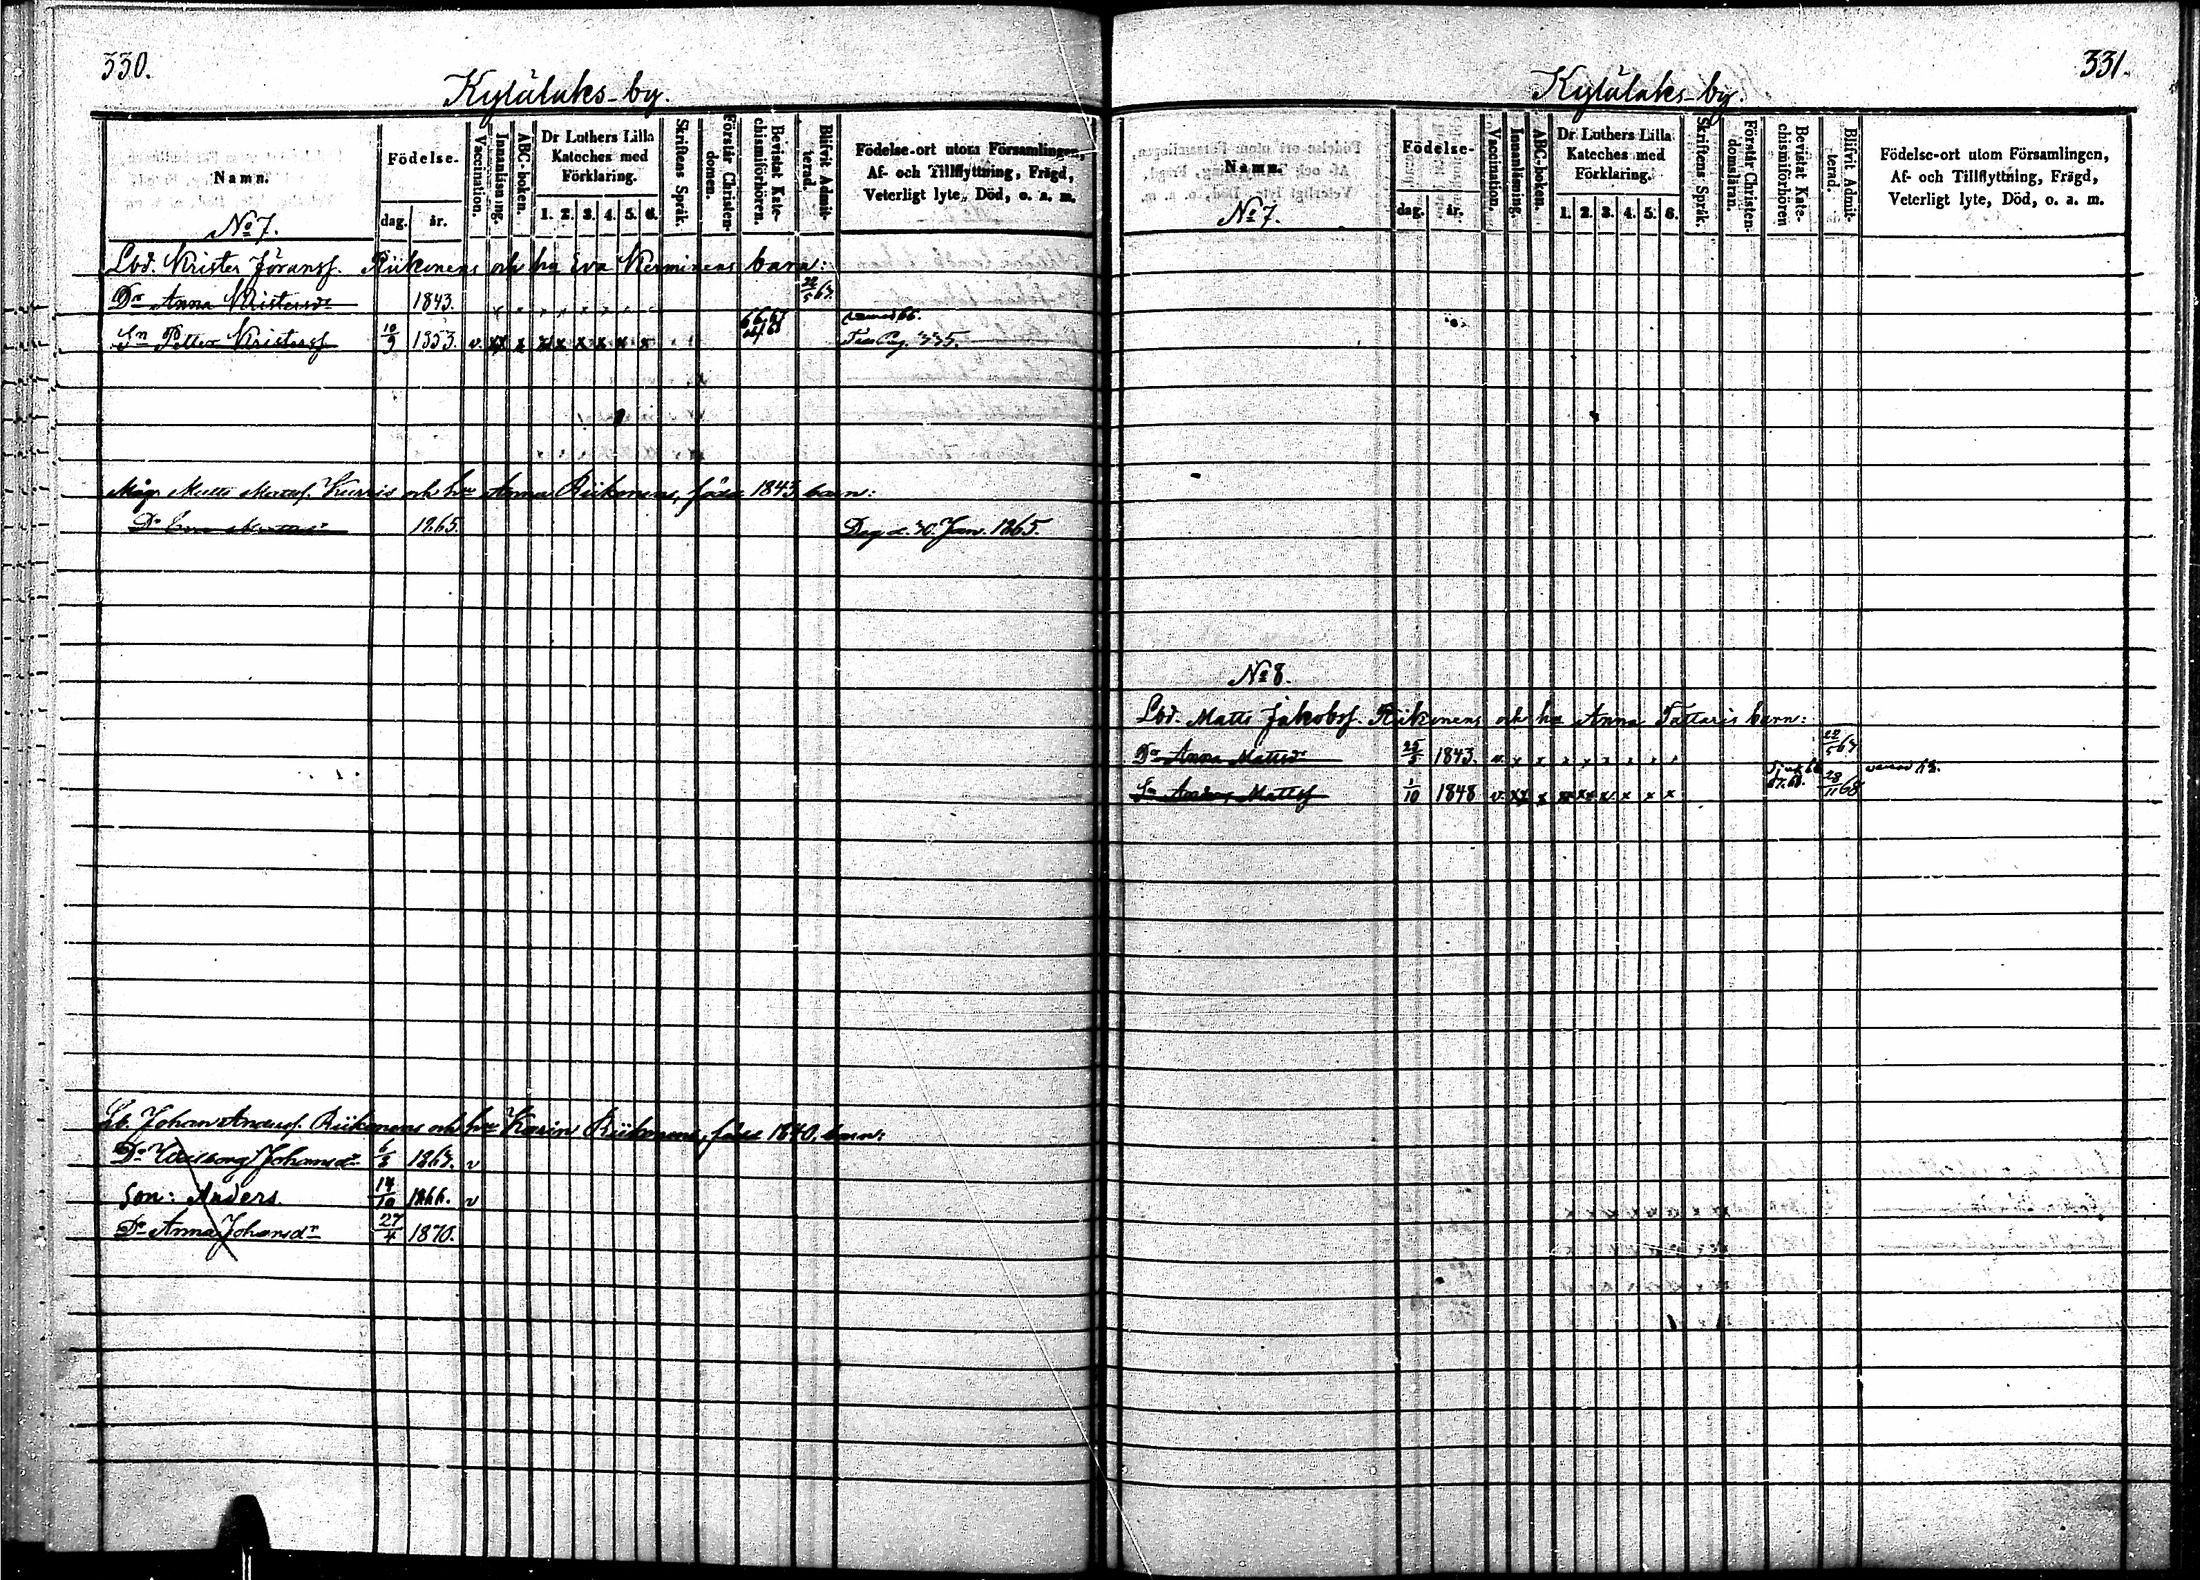 330.
Kylälaks-by.
Namn.
Födelse-
dag. år.
Vaccination.
Innanläsning.
ABC-boken.
Dr Luthers Lilla
Kateches med
Förklaring.
1. 2. 3. 4. 5. 6.
Skriftens Språk.
Förstår Christen-
domen.
Bevistat Kate-
chismiförhören.
Blifvit Admit-
terad.
Födelse-ort utom Församlingen,
Af- och Tillflyttning, Frägd,
Veterligt lyte, Död, o. a. m.
No 7.
Lbd. Krister Jöranss. Riikonens och hu Eva Kerminens barn:
Dr Anna Kristersdr 1843. x x x x x x 22/5 63.
Sn Petter Kristerss. 10/9 1853. v. xx x xx x x x x x 66. 67 68 Fess Pag. 335.
Måg Matts Mattss. Kurris och hu Anna Riikonens, född 1843 barn:
Dr Eva Mattsdr 1865. Dog d. 30. Jan. 1865.
Lb. Johan Anderss. Riikonens och hu Karin Riikonens, född 1840, barn:
Dr Walborg Johansdr 6/3 1863. v
Son: Anders 14/10 1866. v
Dr Anna Johansdr 27/4 1870.
331.
Kylälaks-by.
Namn.
Födelse-
dag. år.
Vaccination.
Innanläsning.
ABC-boken.
Dr Luthers Lilla
Kateches med
Förklaring.
1. 2. 3. 4. 5. 6.
Skriftens Språk.
Förstår Christen-
domsläran.
Bevistat Kate-
chismiförhören
Blifvit Admit-
terad.
Födelse-ort utom Församlingen,
Af- och Tillflyttning, Frägd,
Veterligt lyte, Död, o. a. m.
No 7.
No 8.
Lbd. Matts Jakobss. Riikonens och hu Anna Tattaris barn:
Dr Anna Mattsdr 25/3 1843. v. x x x x x x x x 22/5 63
Sn Anders Mattss 1/10 1848 v. xx x xx xx x x x x 67. 68. 28/11 68